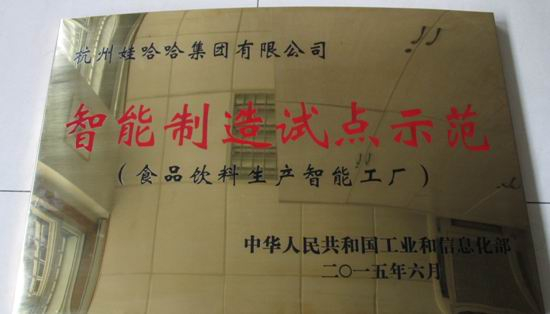 杭州娃哈哈集团有限公司
智能制造试点示范
（食品饮料生产智能工厂）
中华人民共和国工业和信息化部
二〇一五年六月